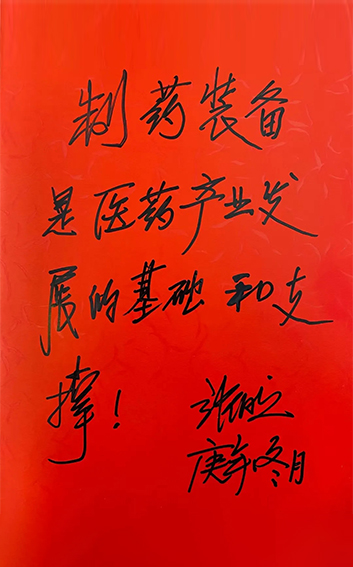 制药装备
是医药产业发
展的基础和支
撑！
庚子冬月